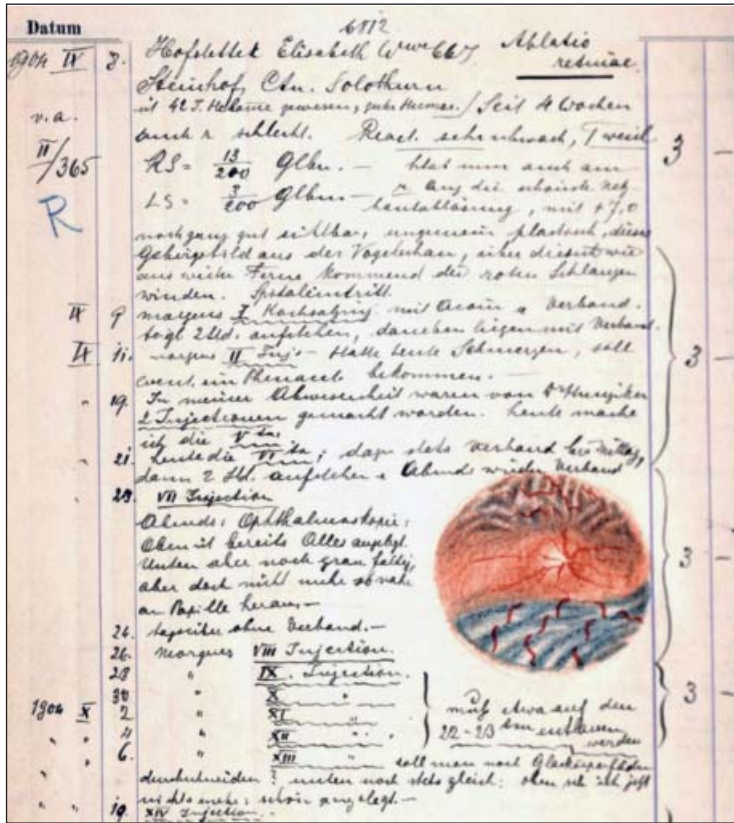 6812
Datum
1904 IX 8. Hofstetter Elisabeth Wwe 667 Ablatio
retinae
Steinhof, Ctn. Solothurn
v.a. ist 42 J. gewesen, / Seit 4 Wochen
auch r schlecht. React. sehr schwach, T weich
II/365 RS = 13/200 Glbn. — man auch am 3
LS = 3/200 Glbn — r Aug die schönste Netz-
R hautablösung, mit +7,0
noch ganz gut sichtbar, ungemein plastisch, diese
Gebirgsbild aus der Vogelschau, über dieses wie
aus weiter Ferne kommend die roten Schlangen
winden. Spitaleintritt
IX 9 morgens I Kochsalzinj. mit Acoin & Verband.
tägl 2 Std. aufstehen, daneben liegen mit Verband.
IX 11. morgens II Inj. — Hatte heute Schmerzen, soll 3
event. ein Phenacet bekommen. —
" 19. In meiner Abwesenheit waren von Dr Hunziker
2 Injectionen gemacht worden. Heute mache
ich die Vte
" 21. Heute die VIte; dazu stets Verband bis Mittag,
dann 2 Std. aufstehen & Abends wieder Verband
" 23. VII Injection
Abends: Ophthalmoskopie:
Oben ist bereits Alles angelegt.
Unten aber noch grau faltig, 3
aber doch nicht mehr so nahe
an Papille heran. —
24. tagsüber ohne Verband. —
26. Morgens VIII Injection.
28 " IX. Injection.
30 " X " 3
1904 X 2 " XI " muss etwa auf den
" " 4 " XII " 22-23 ten entlassen
werden
" " 6. " XIII " soll man noch Glaskörperfäden
durchschneiden? unten noch stets gleich; oben seh ich jetzt
nichts mehr: schön angelegt. —
" " 19. XIV Injection.